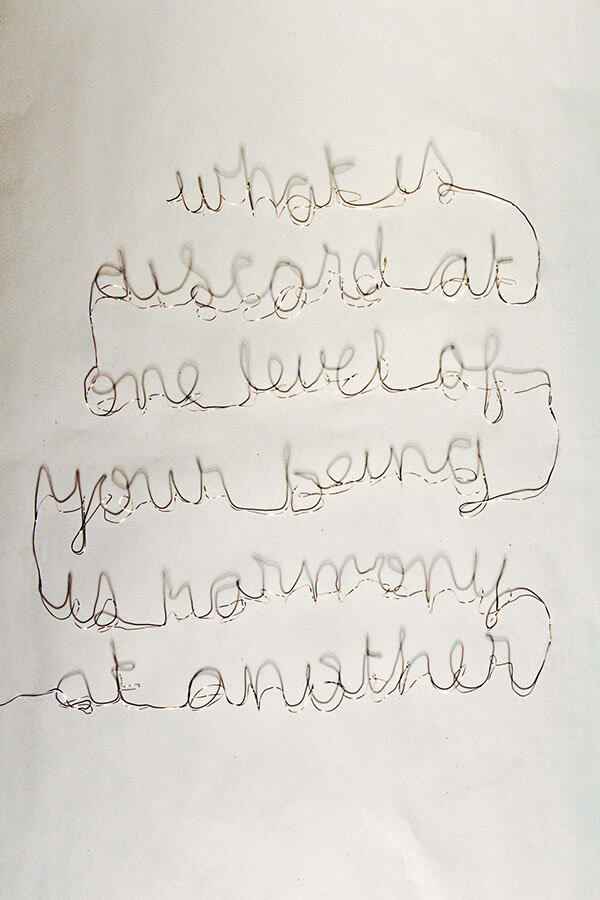 what is
discord at
one level of
your being
is harmony
at another